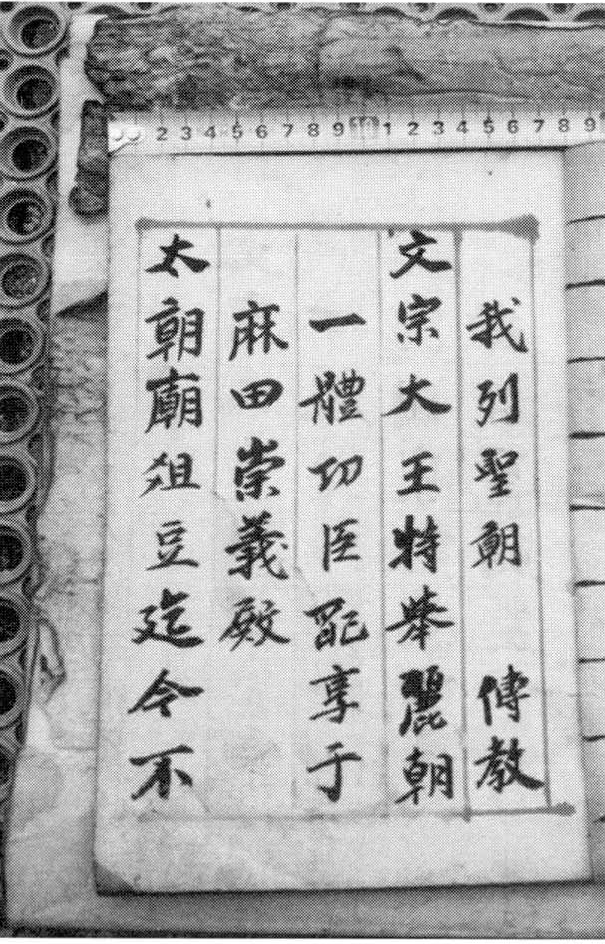 2 3 4 5 6 7 8 9 10 1 2 3 4 5 6 7 8 9
我列聖朝 傳教
文宗大王特擧麗朝
一體功臣配享于
麻田崇義殿
太朝廟俎豆迄今不